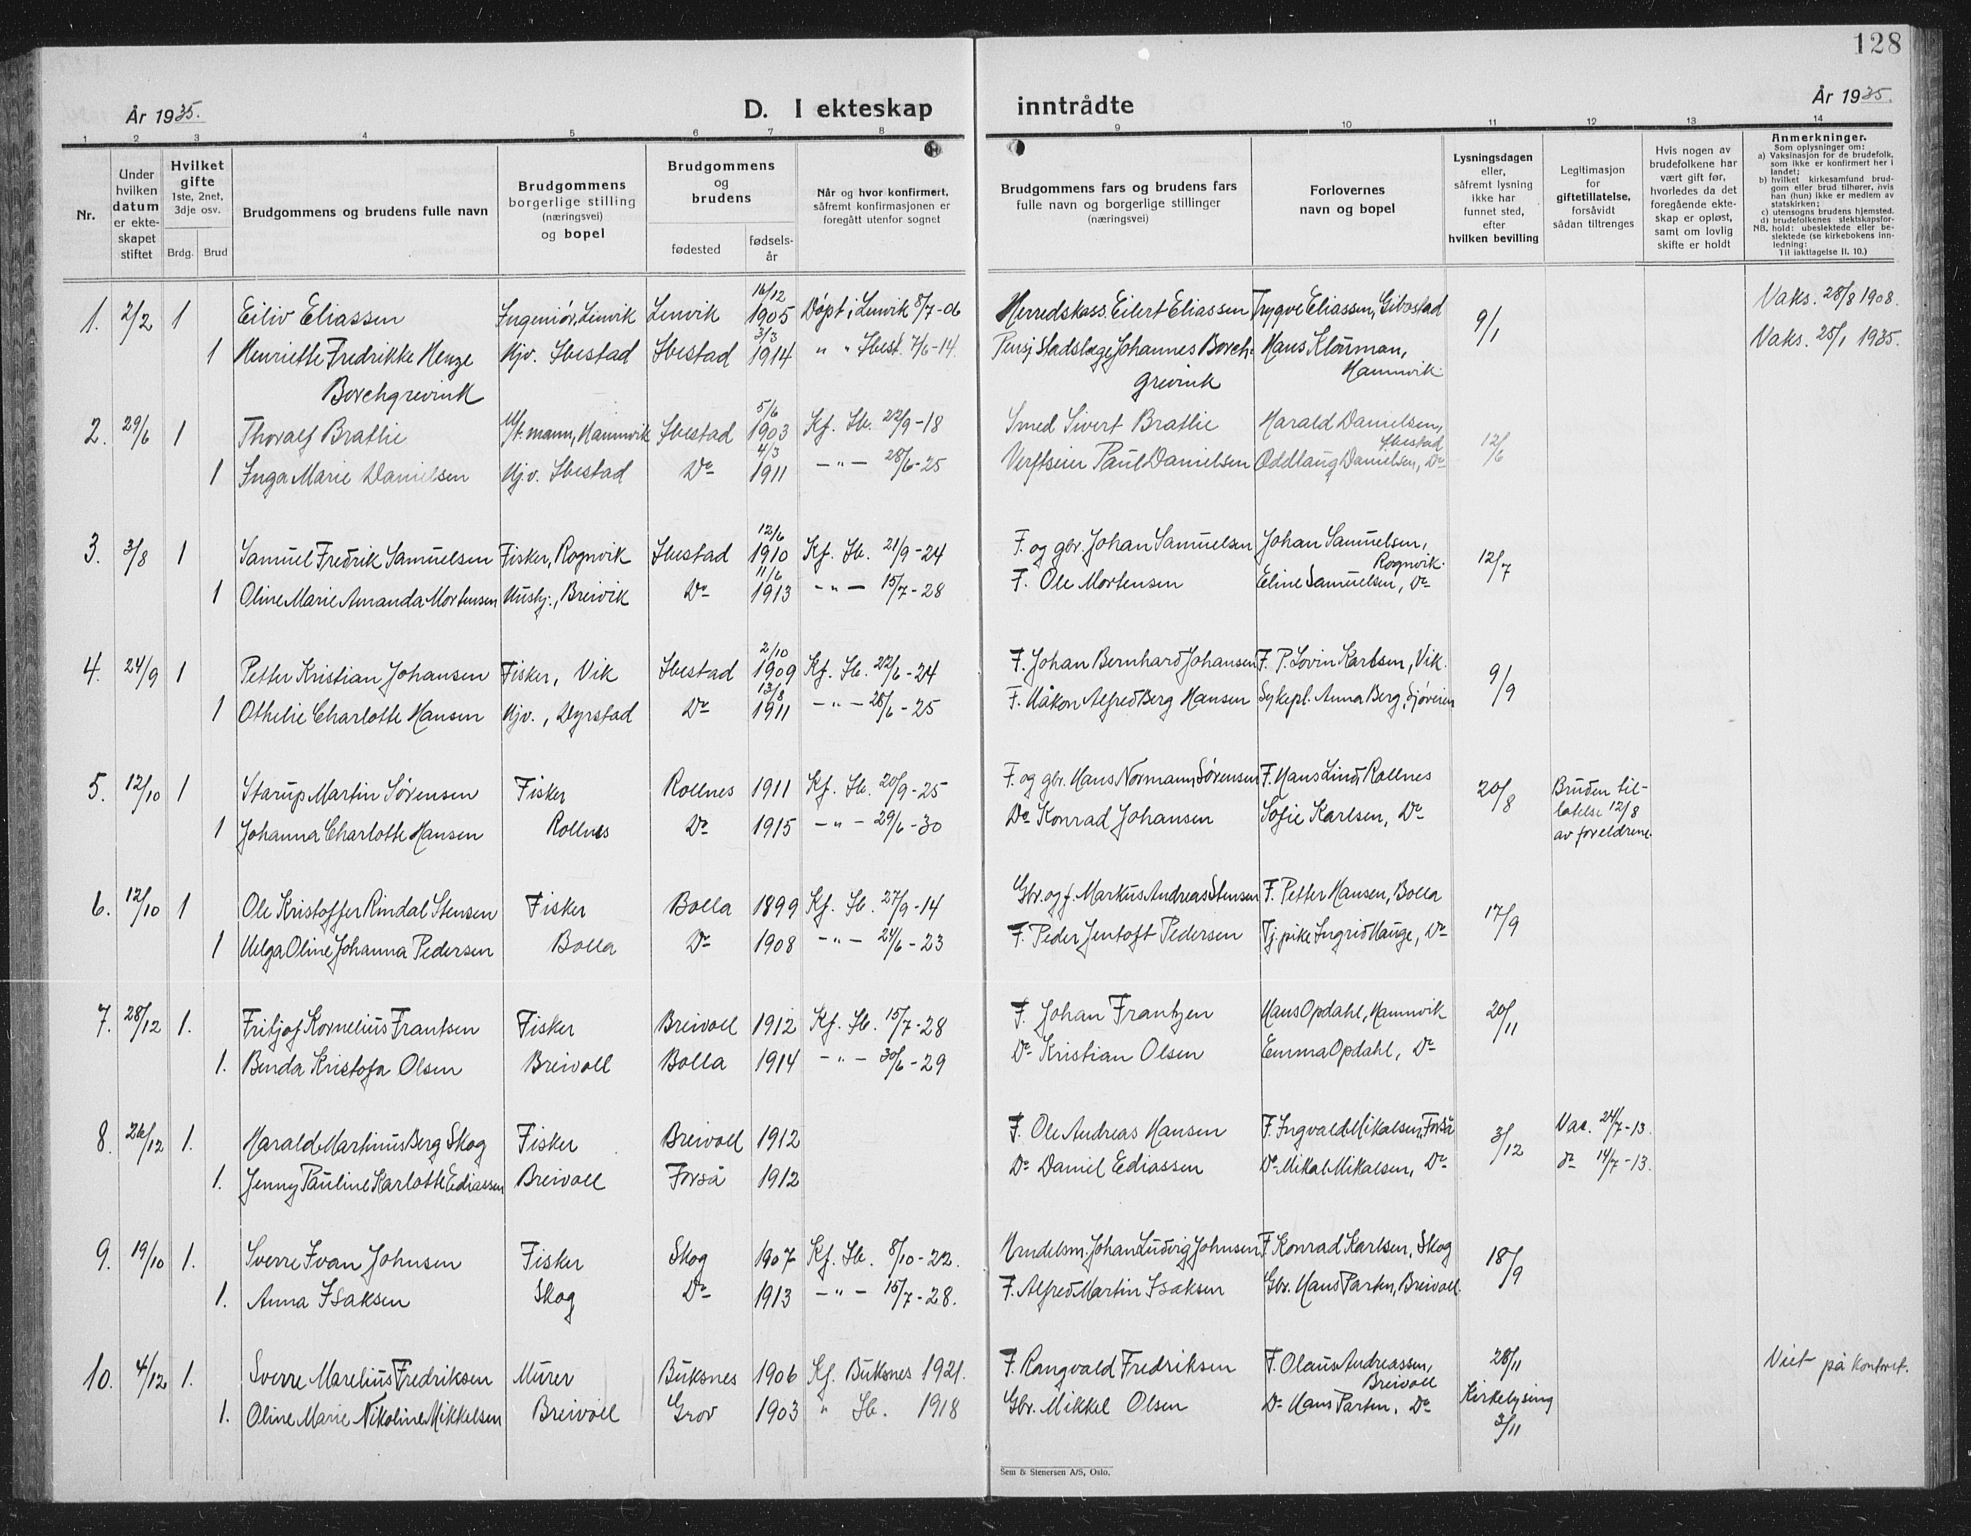 128
År 1935.
D. I ekteskap inntrådte
År 1935.
1 2 3 4 5 6 7 8 9 10 11 12 13 14
Nr.
Under hvilken datum er ekteskapet stiftet
Hvilket gifte 1ste, 2net, 3dje osv.
Brdg. Brud
Brudgommens og brudens fulle navn
Brudgommens borgerlige stilling (næringsvei) og bopel
Brudgommens og brudens
fødested
fødselsår
Når og hvor konfirmert, såfremt konfirmasjonen er foregått utenfor sognet
Brudgommens fars og brudens fars fulle navn og borgerlige stillinger (næringsvei)
Forlovernes navn og bopel
Lysningsdagen eller, såfremt lysning ikke har funnet sted, efter hvilken bevilling
Legitimasjon for giftetillatelse, forsåvidt sådan tiltrenges
Hvis nogen av brudefolkene har vært gift før, hvorledes da det foregående ekteskap er opløst, samt om lovlig skifte er holdt
Anmerkninger.
Som oplysninger om:
a) Vaksinasjon for de brudefolk, som ikke er konfirmert her i landet;
b) hvilket kirkesamfund brudgom eller brud tilhører, hvis han (hun) ikke er medlem av statskirken;
c) utensogns brudens hjemsted.
d) brudefolkenes slektskapsforhold: ubeslektede eller beslektede (se kirkebokens innledning:
NB. Til iakttagelse II. 10.)
1. 2/2 1 Eiliv Eliassen Ingeniør, Lenvik Lenvik 16/12 1905 Døpt i Lenvik 8/7-06 Herredskass. Eilert Eliassen Trygve Eliassen, Gibostad 9/1 Vaks. 28/8 1908.
1 Henriette Fredrikke Menze Borchgrevink Hjv. Ibestad Ibestad 3/3 1914 " " Ibest. 7/6-14. Pensj Stadslæge Johannes Borchgrevink Hans Klouman, Hamnvik. Vaks. 25/1 1935.
2. 29/6 1 Thoralf Bratlie M/t.mann, Hamnvik Ibestad 5/6 1903 Kf. Ib. 22/9-18 Smed Sivert Bratlie Harald Danielsen, Ibestad 12/6
1 Inga Marie Danielsen Hjv. Ibestad Do 4/3 1911 -"- 28/6-25 Verftseier Paul Danielsen Oddlaug Danielsen, Do
3. 3/8 1 Samuel Fredrik Samuelsen Fisker, Rognvik Ibestad 12/6 1910 Kf. Ib. 21/9-24 F. og gbr. Johan Samuelsen Johan Samuelsen, Rognvik. 12/7
1 Oline Marie Amanda Mortensen Hushj., Breivik Do 11/6 1913 -"- 15/7-28 F. Ole Mortensen Eline Samuelsen, Do
4. 24/9 1 Petter Kristian Johansen Fisker, Vik Ibestad 2/10 1909 Kf. Ib. 22/6-24 F. Johan Bernhard Johansen F. P. Lovin Karlsen, Vik. 9/9
1 Othelie Charlotte Hansen Hjv., Dyrstad Do 13/8 1911 -"- 28/6-25 F. Håkon Alfred Berg Hansen Sykepl. Anna Berg, Sjøveien
5. 12/10 1 Starup Martin Sørensen Fisker Rollnes 1911 Kf. Ib. 20/9-25 F. og gbr. Hans Normann Sørensen F. Hans Lind, Rollnes 20/8 Bruden tillatelse 12/8 av foreldrene.
1 Johanna Charlotte Hansen Rollnes Do 1915 -"- 29/6-30 Do Konrad Johansen Sofie Karlsen, Do
6. 12/10 1 Ole Kristoffer Rindal Stensen Fisker Bolla 1899 Kf. Ib. 27/9-14 Gbr. og f. Markus Andreas Stensen F. Petter Hansen, Bolla 17/9
1 Helga Oline Johanna Pedersen Bolla Do 1908 -"- 24/6-23 F. Peder Jentoft Pedersen Tj.pike Ingrid Hauge, Do
7. 28/12 1. Fritjof Kornelius Frantsen Fisker Breivoll 1912 Kf. Ib. 15/7-28 F. Johan Frantzen Hans Opdahl, Hamnvik 20/11
1. Benda Kristofa Olsen Breivoll Bolla 1914 -"- 30/6-29 Do Kristian Olsen Emma Opdahl, Do
8. 26/12 1. Harald Martinus Berg Skog Fisker Breivoll 1912 F. Ole Andreas Hansen F. Ingvald Mikalsen, Forså 3/12 Vac. 24/7-13.
1. Jenny Pauline Karlotte Ediassen Breivoll Forså 1912 Do Daniel Ediassen Do Mikal Mikalsen, Do do 14/7-13.
9. 19/10 1. Sverre Ivan Johnsen Fisker Skog 1907 Kf. Ib. 8/10-22. Johan Ludvig Johnsen F. Konrad Karlsen, Skog 18/9
1. Anna Isaksen Skog Do 1913 -"- 15/7-28. F. Alfred Martin Isaksen Gbr. Hans Parten, Breivoll.
10. 4/12 1. Sverre Marelius Fredriksen Murer Buksnes 1906 Kf. Buksnes 1921. F. Rangvald Fredriksen F. Olaus Andreassen, Breivoll 28/11 Viet på kontoret.
1. Oline Marie Nikoline Mikkelsen Breivoll Grov 1903 " Ib. 1918 Gbr. Mikkel Olsen Do Hans Parten, Do Kirkelysing 3/11
Sem & Stenersen A/S, Oslo.